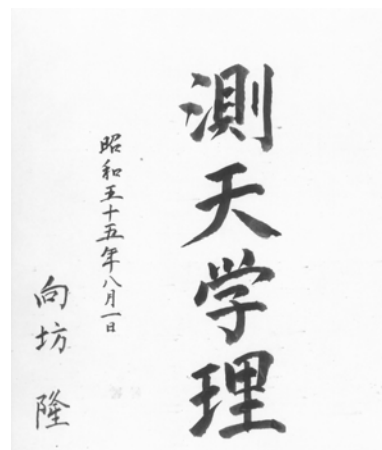 測天学理
昭和五十五年八月一日
向坊 隆